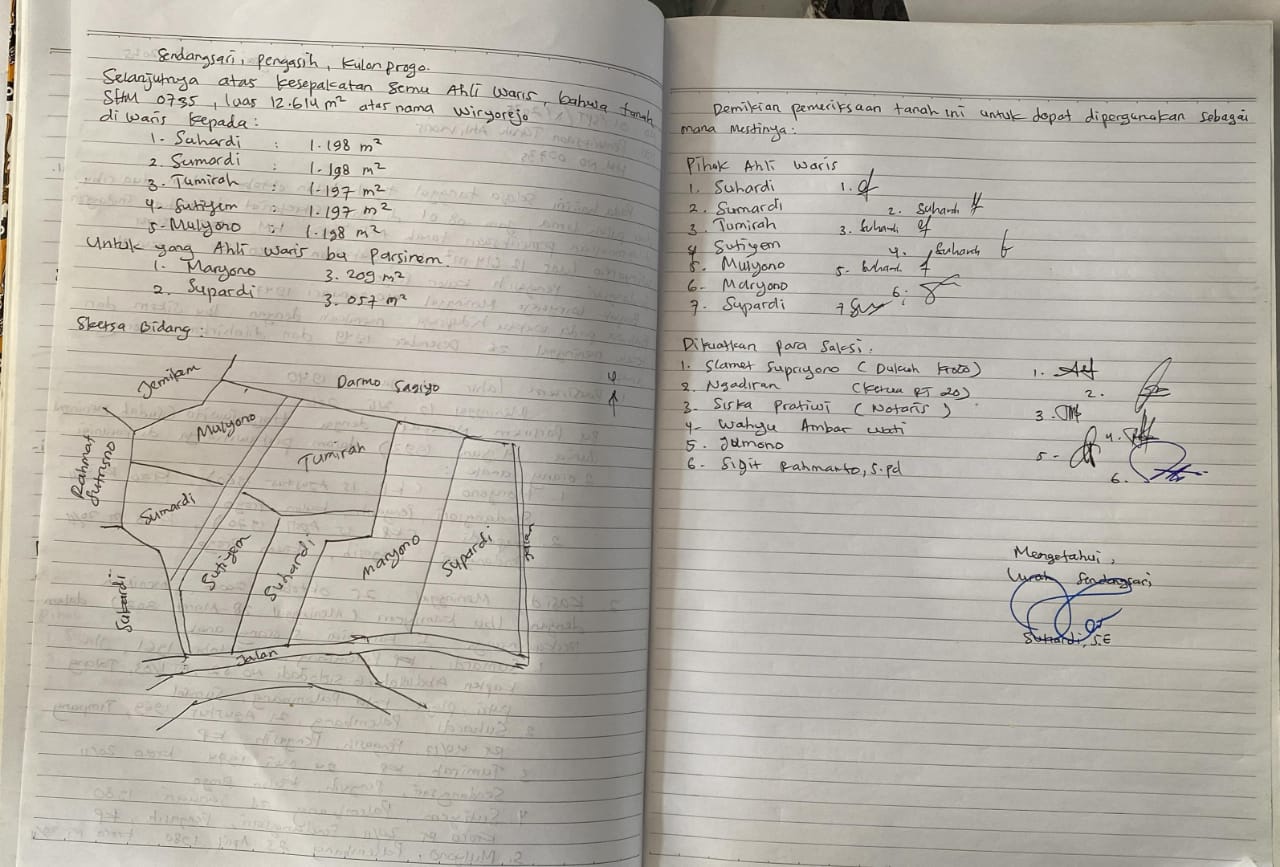 Sendangsari, Pengasih, Kulon progo.
Selanjutnya atas kesepakatan semu Ahli Waris, bahwa tanah
SHM 0735, luas 12.614 m² atas nama Wiryorejo
di waris kepada :
1. Suhardi : 1.198 m²
2. Sumardi : 1.198 m²
3. Tumirah : 1.197 m²
4. Sutiyem : 1.197 m²
5. Mulyono : 1.198 m²
Untuk yang Ahli Waris bu Parsinem.
1. Maryono 3.209 m²
2. Supardi 3.057 m²
Sketsa Bidang :
Jemikem
Darmo Sagiyo
Mulyono
Tumirah
Rahmat Sutrisno
Sumardi
Sutiyem
Suhardi
Maryono
Supardi
Jalan
Suhardi
Jalan
Demikian pemeriksaan tanah ini untuk dapat dipergunakan sebagai
mana mestinya :
Pihak Ahli Waris
1. Suhardi 1.
2. Sumardi 2. Suhardi
3. Tumirah 3. Suhardi
4 Sutiyem 4. Suhardi
5. Mulyono 5. Suhardi
6. Maryono 6.
7. Supardi 7
Dikuatkan para Saksi.
1. Slamet Supriyono (Dukuh Kroto) 1.
2. Ngadiran (Ketua RT 20) 2.
3. Siska Pratiwi (Notaris) 3.
4. Wahyu Ambar Wati 4.
5. Jumono 5.
6. Sigit Rahmanto, S.pd 6.
Mengetahui,
Lurah Sendangsari
Suhardi, S.E